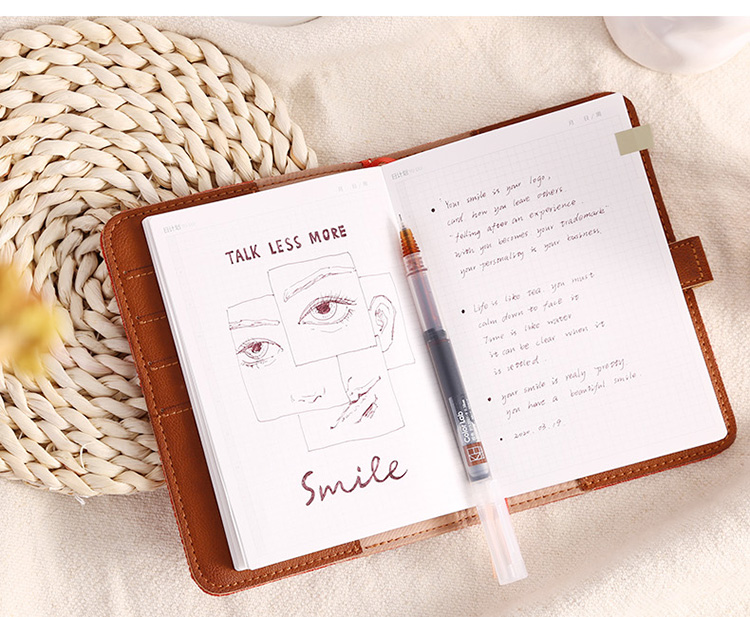 TALK LESS MORE
Smile
Your smile is your logo,
card how you leave others
"feeling after an experience
with you becomes your trademark"
your personality is your business.
Life is like tea. you must
calm down to taste it
Time is like water
it can be clear when it
is settled.
your smile is realy pretty.
you have a beautiful smile.
2020. 03. 19
Color Lab